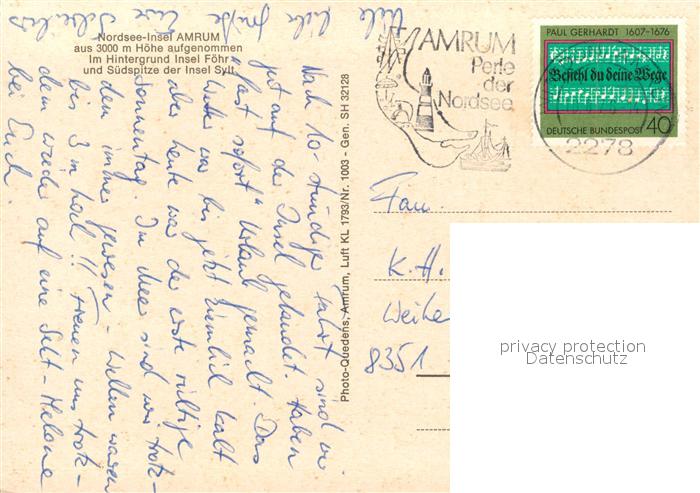 Nordsee-Insel AMRUM
aus 3000 m Höhe aufgenommen
Im Hintergrund Insel Föhr
und Südspitze der Insel Sylt
Nach 10-stündiger Fahrt sind wir
gut auf der Insel gelandet. Haben
"fast sofort" Urlaub gemacht. Das
war bis jetzt ziemlich kalt
aber heute war der erste richtige
Sonnentag. Im Meer sind wir trotz-
dem immer gewesen - Wellen waren
bis 3 m hoch!! Freuen uns trotz-
dem wieder auf eine
bei Euch.
Viele liebe Grüße Eure
Photo-Quedens, Amrum, Luft KL 1793/Nr. 1003 - Gen. SH 32128
AMRUM
Perle
der
Nordsee
PAUL GERHARDT 1607-1676
Befiehl du deine Wege
DEUTSCHE BUNDESPOST 40
2278
Fam.
K.H.
8351
privacy protection
Datenschutz